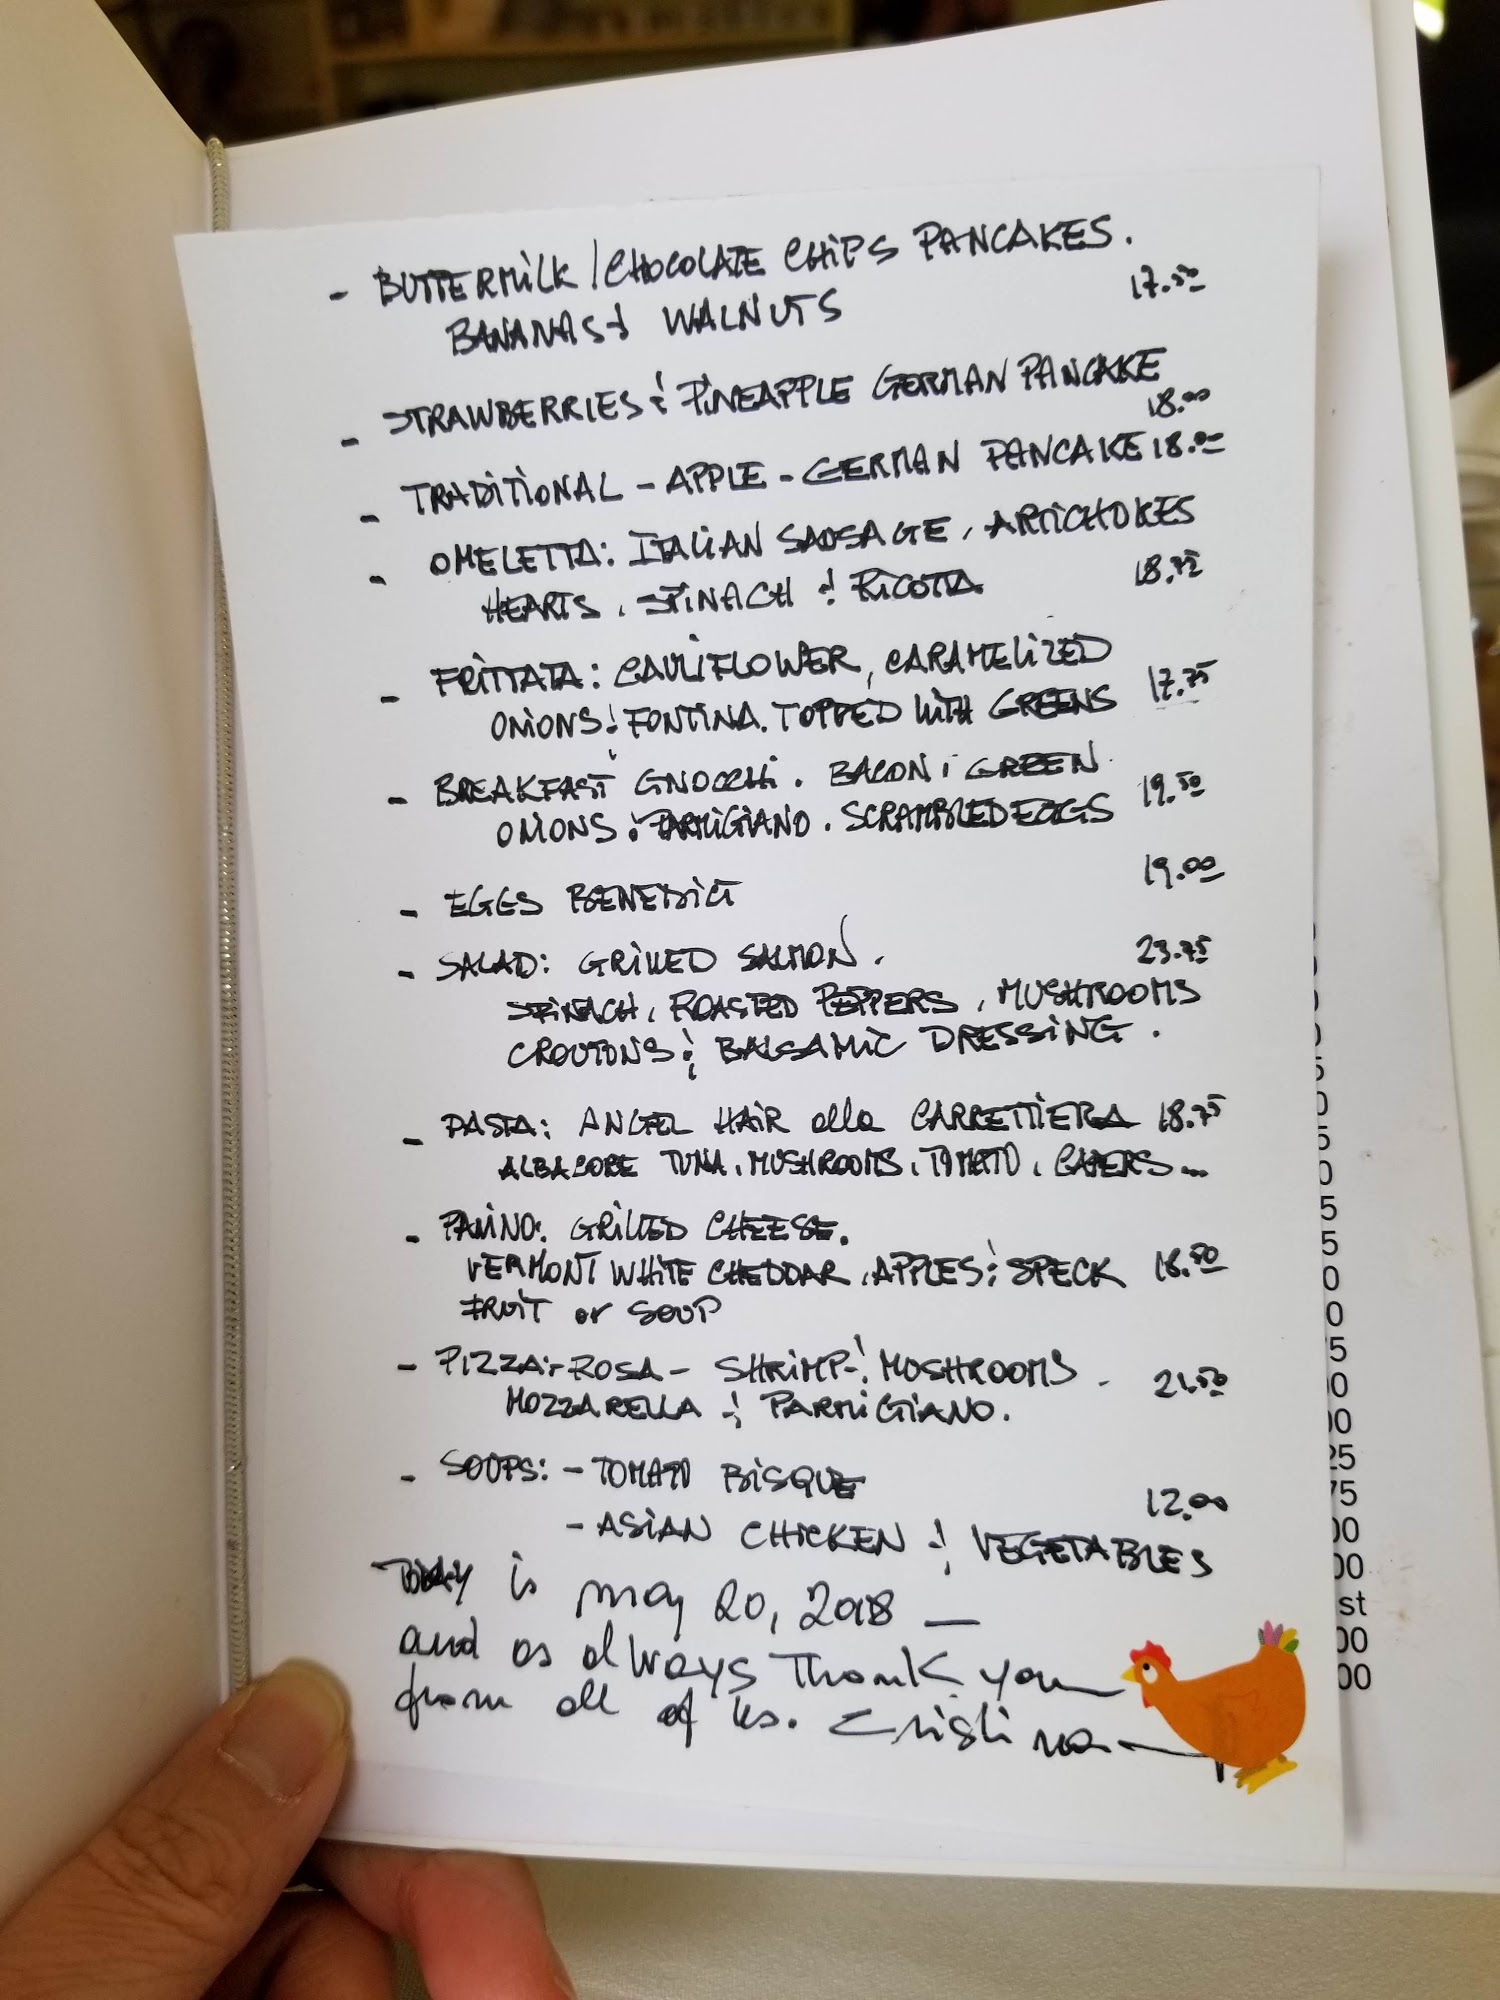 - BUTTERMILK / CHOCOLATE CHIPS PANCAKES.
BANANAS & WALNUTS 17.50
- STRAWBERRIES & PINEAPPLE GERMAN PANCAKE
18.00
- TRADITIONAL - APPLE - GERMAN PANCAKE 18.00
- OMELETTA: ITALIAN SAUSAGE, ARTICHOKES
HEARTS, SPINACH & RICOTTA 18.75
- FRITTATA: CAULIFLOWER, CARAMELIZED
ONIONS & FONTINA. TOPPED WITH GREENS 17.75
- BREAKFAST GNOCCHI. BACON, GREEN
ONIONS & PARMIGIANO. SCRAMBLED EGGS 19.50
- EGGS BENEDICT 19.00
- SALAD: GRILLED SALMON. 23.75
SPINACH, ROASTED PEPPERS, MUSHROOMS
CROUTONS & BALSAMIC DRESSING.
- PASTA: ANGEL HAIR alla CARRETTIERA 18.75
ALBACORE TUNA, MUSHROOMS, TOMATO, CAPERS...
- PANINO: GRILLED CHEESE.
VERMONT WHITE CHEDDAR, APPLES & SPECK 18.50
FRUIT or SOUP
- PIZZA: - ROSA - SHRIMP & MUSHROOMS
MOZZARELLA & PARMIGIANO. 21.50
- SOUPS: - TOMATO BISQUE
12.00
- ASIAN CHICKEN & VEGETABLES
TODAY is may 20, 2018 —
and as always Thank you
from all of us. Cristina
5
0
5
0
5
5
0
0
5
00
00
25
75
00
00
st
00
00